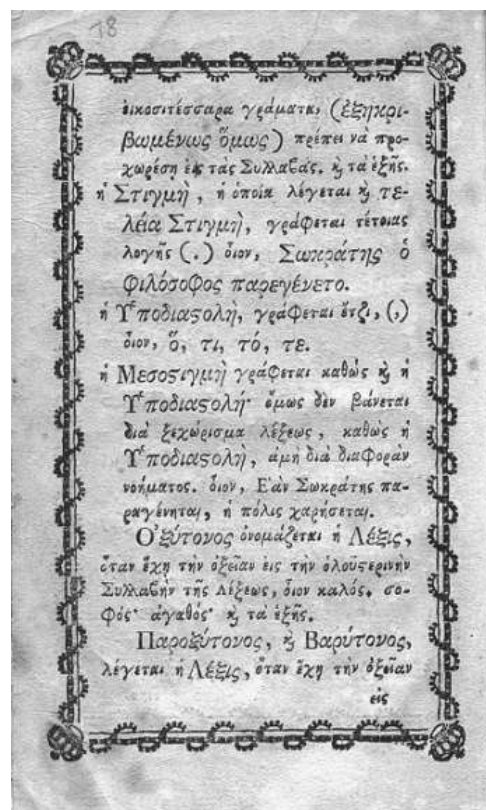 78
εἰκοσιτέσσαρα γράματα, (ἐξηκρι-
βωμένως ὅμως) πρέπει νὰ προ-
χωρέσῃ εἰς τὰς Συλλαβάς. ϗ τὰ ἑξῆς.
ἡ Στιγμὴ, ἡ ὁποία λέγεται ϗ τε-
λεία Στιγμὴ, γράφεται τέτοιας
λογῆς (.) οἷον, Σωκράτης ὁ
φιλόσοφος παρεγένετο.
ἡ Υ῾ποδιαϛολὴ, γράφεται ἔτζι, (,)
οἷον, ὅ, τι, τό, τε.
ἡ Μεσοϛιγμὴ γράφεται καθὼς ϗ ἡ
Υ῾ποδιαϛολή· ὅμως δὲν βάνεται
διὰ ξεχώρισμα λέξεως, καθὼς ἡ
Υ῾ποδιαϛολὴ, ἀμὴ διὰ διαφορὰν
νοήματος. οἷον, Ε᾿ὰν Σωκράτης πα-
ραγένηται, ἡ πόλις χαρήσεται.
Ο᾿ξύτονος ὀνομάζεται ἡ Λέξις,
ὅταν ἔχῃ τὴν ὀξεῖαν εἰς τὴν ὁλοϋϛερινὴν
Συλλαβὴν τῆς Λέξεως, οἷον καλός. σο-
φός· ἀγαθός· ϗ τὰ ἑξῆς.
Παροξύτονος, ϗ Βαρύτονος,
λέγεται ἡ Λέξις, ὅταν ἔχῃ τὴν ὀξεῖαν
εἰς